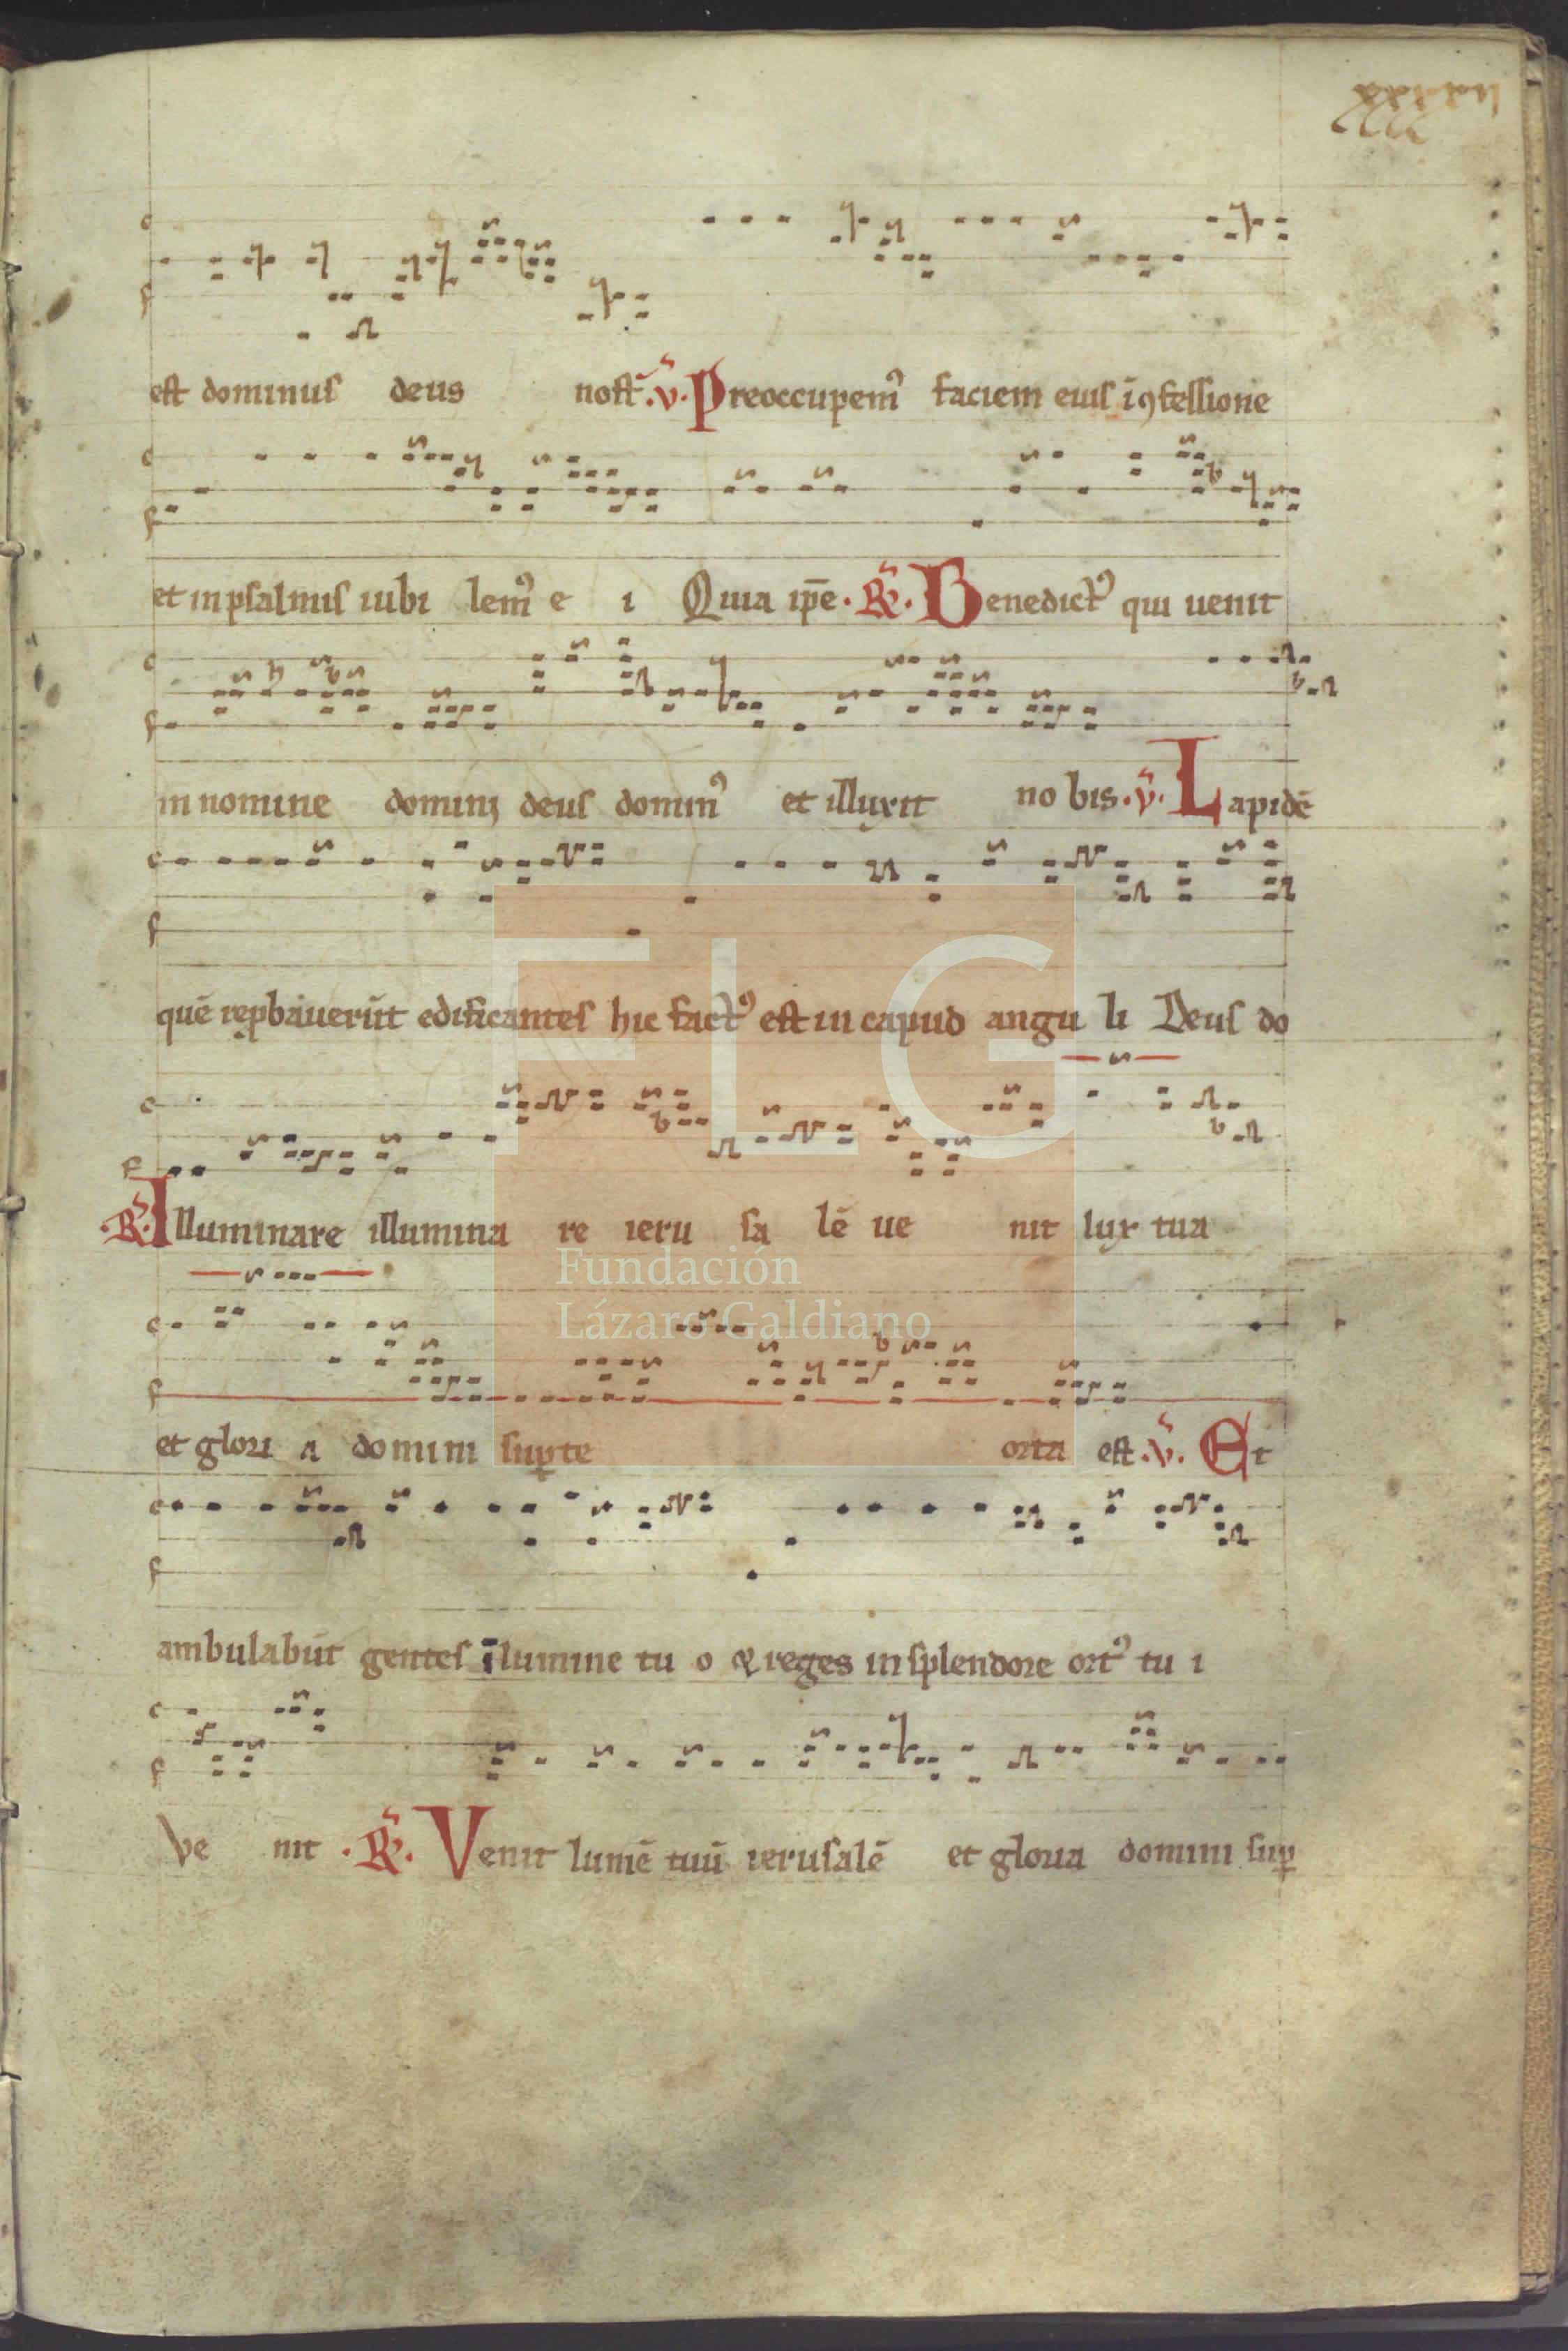 xxxvii
est dominus deus nost̄ .v̄. Preoccupemꝰ faciem eius ī ꝯfessione
et in psalmis iubi lemꝰ e i Quia ip̄e . R̄. Benedictꝰ qui uenit
in nomine domini deus dominꝰ et illuxit no bis .v̄. Lapidē
quē rep̱bauerūt edificantes hic factꝰ est in capud angu li Deus do
.R̄. Illuminare illumina re ieru sa lē ue nit lux tua
et glori a domini sup̱ te orta est .v̄. Et
ambulabūt gentes ī lumine tu o & reges in splendore ortꝰ tu i
Ve nit . R̄. Venit lumē tuū ierusalē et gloria domini sup̱
FLG
Fundación
Lázaro Galdiano